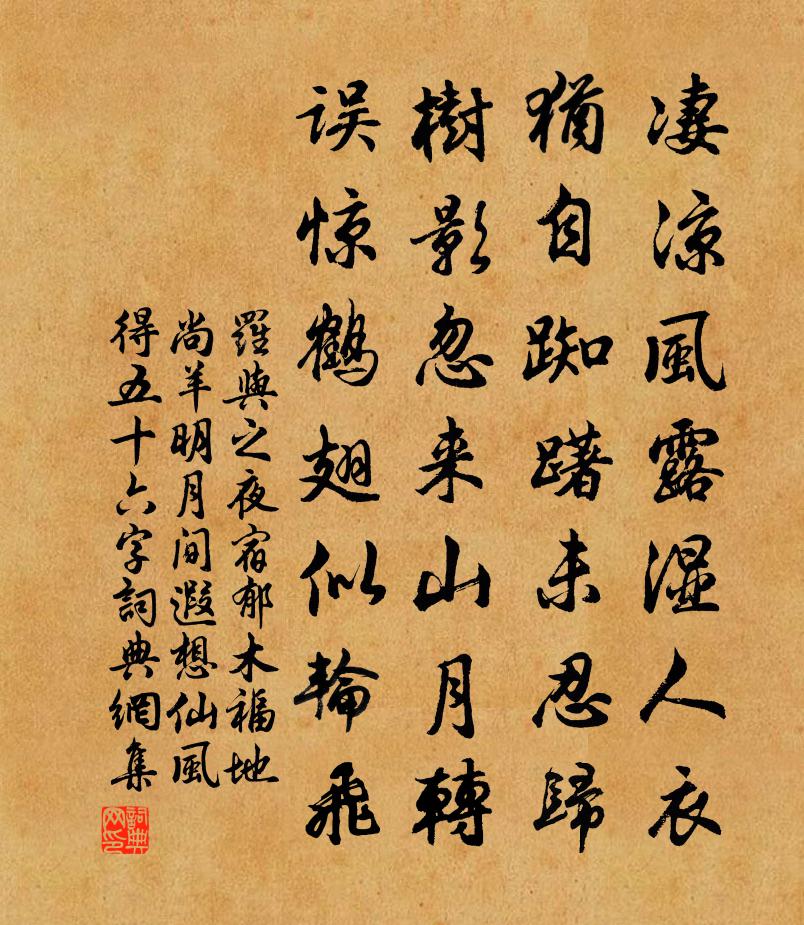 凄凉風露湿人衣
猶自踟躇未忍歸
樹影忽来山月轉
误惊鹤翅似輪飛
羅與之夜宿郁木福地
尚羊明月间遐想仙風
得五十六字詞典網集
詞典网印